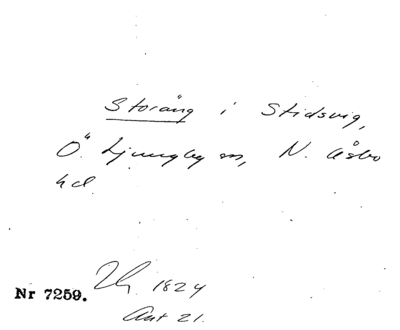 Storäng i Stidsvig,
Ö. Ljungby sn, N. Åsbo
hd.
1824
Nr 7259.
Akt 21.